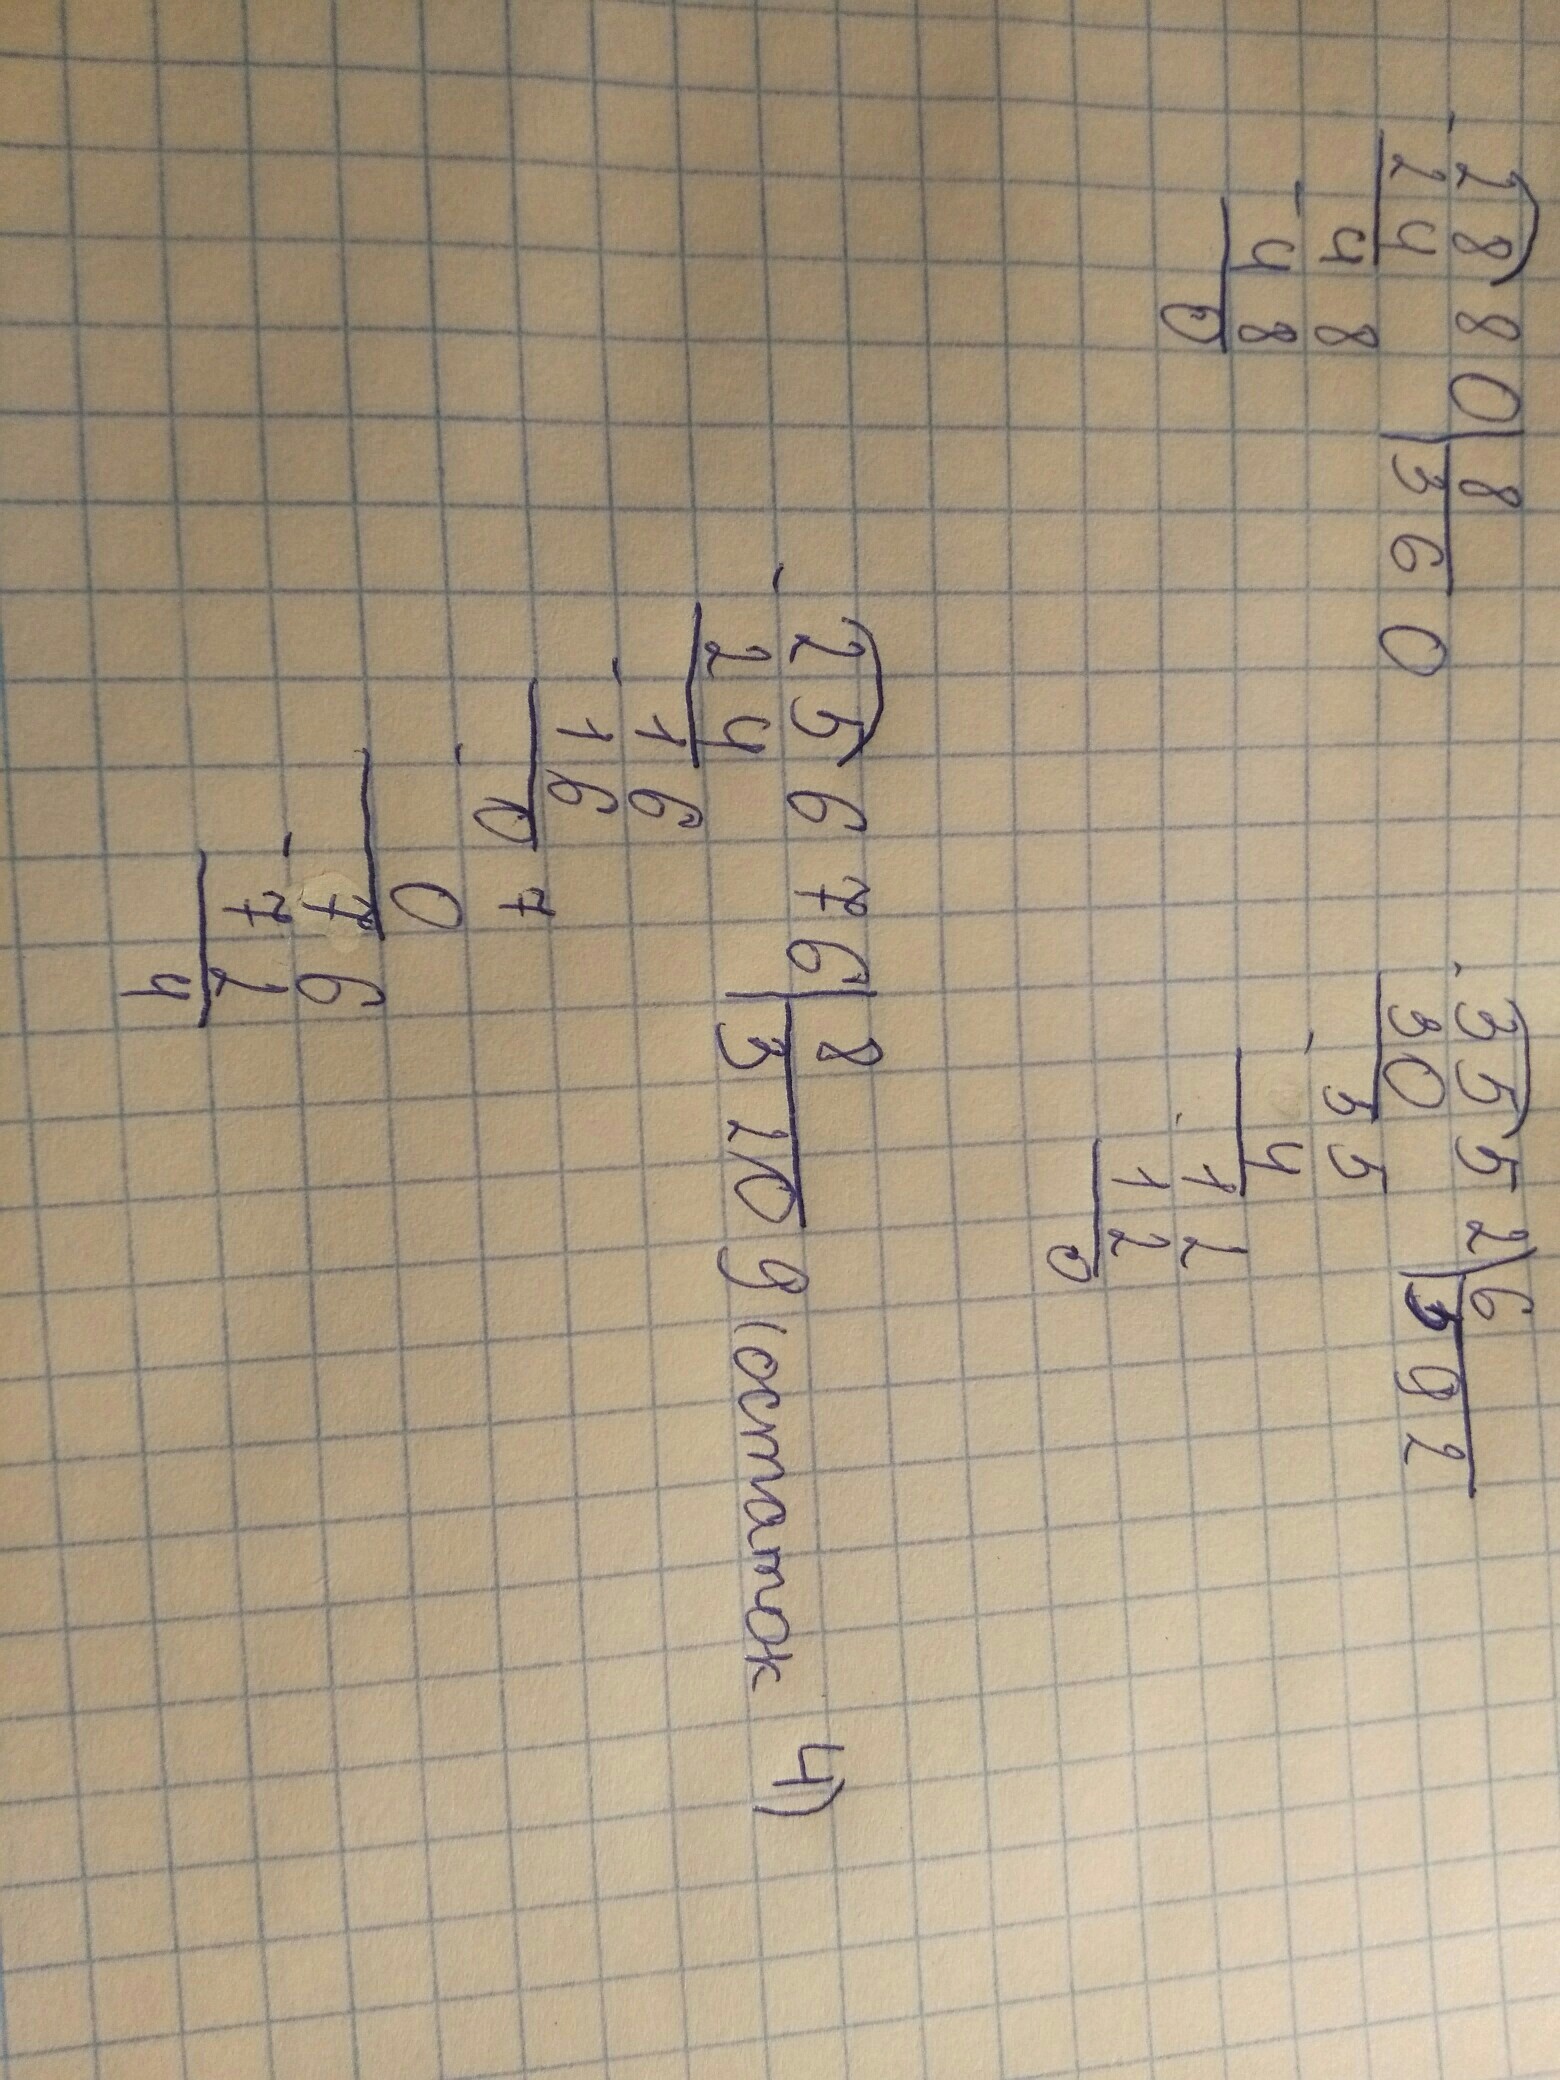 2880 8
24 360
48
48
0
3552 6
30 592
55
4
12
12
0
25676 8
24 3209 (остаток 4)
16
16
07
0
76
72
4